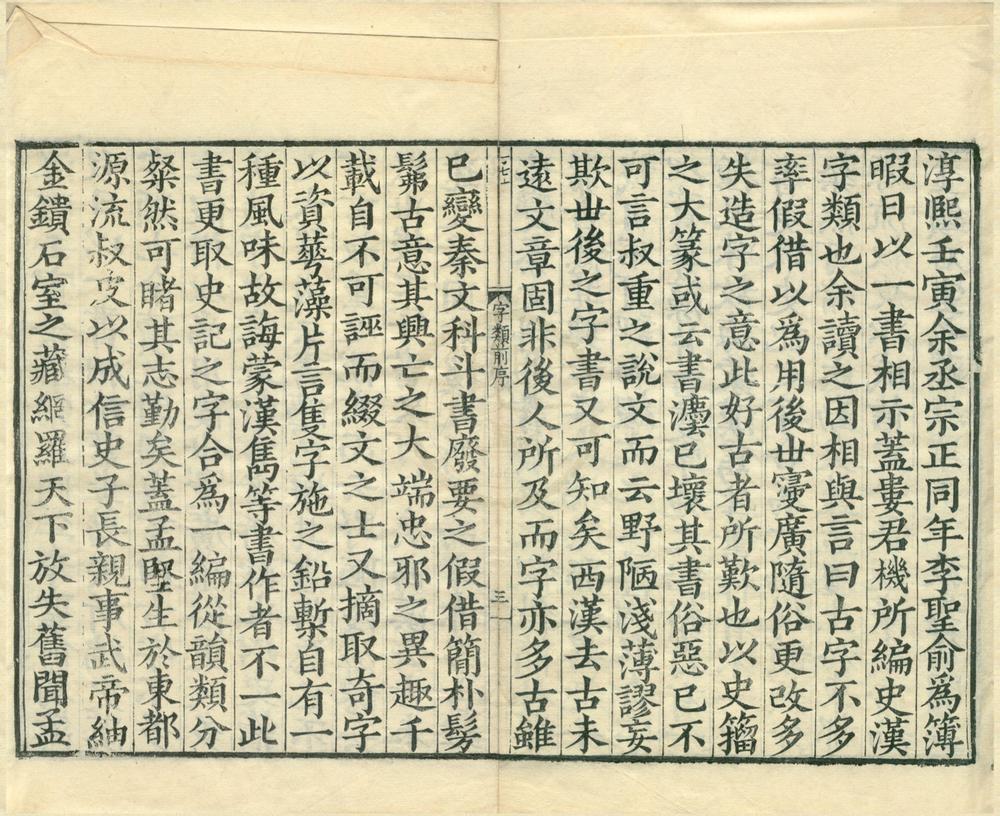 淳熙壬寅余丞宗正同年李聖俞爲簿
暇日以一書相示蓋婁君機所編史漢
字類也余讀之因相與言曰古字不多
率假借以爲用後世寖廣隨俗更改多
失造字之意此好古者所歎也以史籒
之大篆或云書灋已壞其書俗惡已不
可言叔重之說文而云野陋淺薄謬妄
欺世後之字書又可知矣西漢去古未
遠文章固非後人所及而字亦多古雖
已變秦文科斗書廢要之假借簡朴髣
髴古意其興亡之大端忠邪之異趣千
載自不可誣而綴文之士又摘取奇字
以資華藻片言隻字施之鉛槧自有一
種風味故誨蒙漢雋等書作者不一此
書更取史記之字合爲一編從韻類分
粲然可睹其志勤矣蓋孟堅生於東都
源流叔皮以成信史子長親事武帝紬
金鐀石室之藏網羅天下放失舊聞孟
字類前序
三